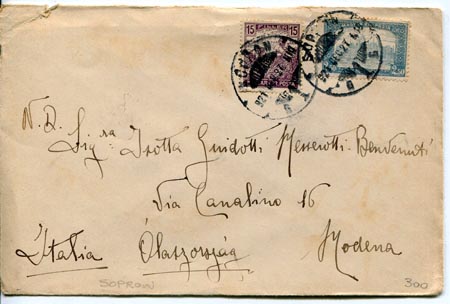 15 FILLÉR 15
SOPRON
SOPRON
N. D. Sig.ra Isotta Guidotti Messerotti-Benvenuti
Via Canalino 16
Italia Olaszország Modena
SOPRON 300